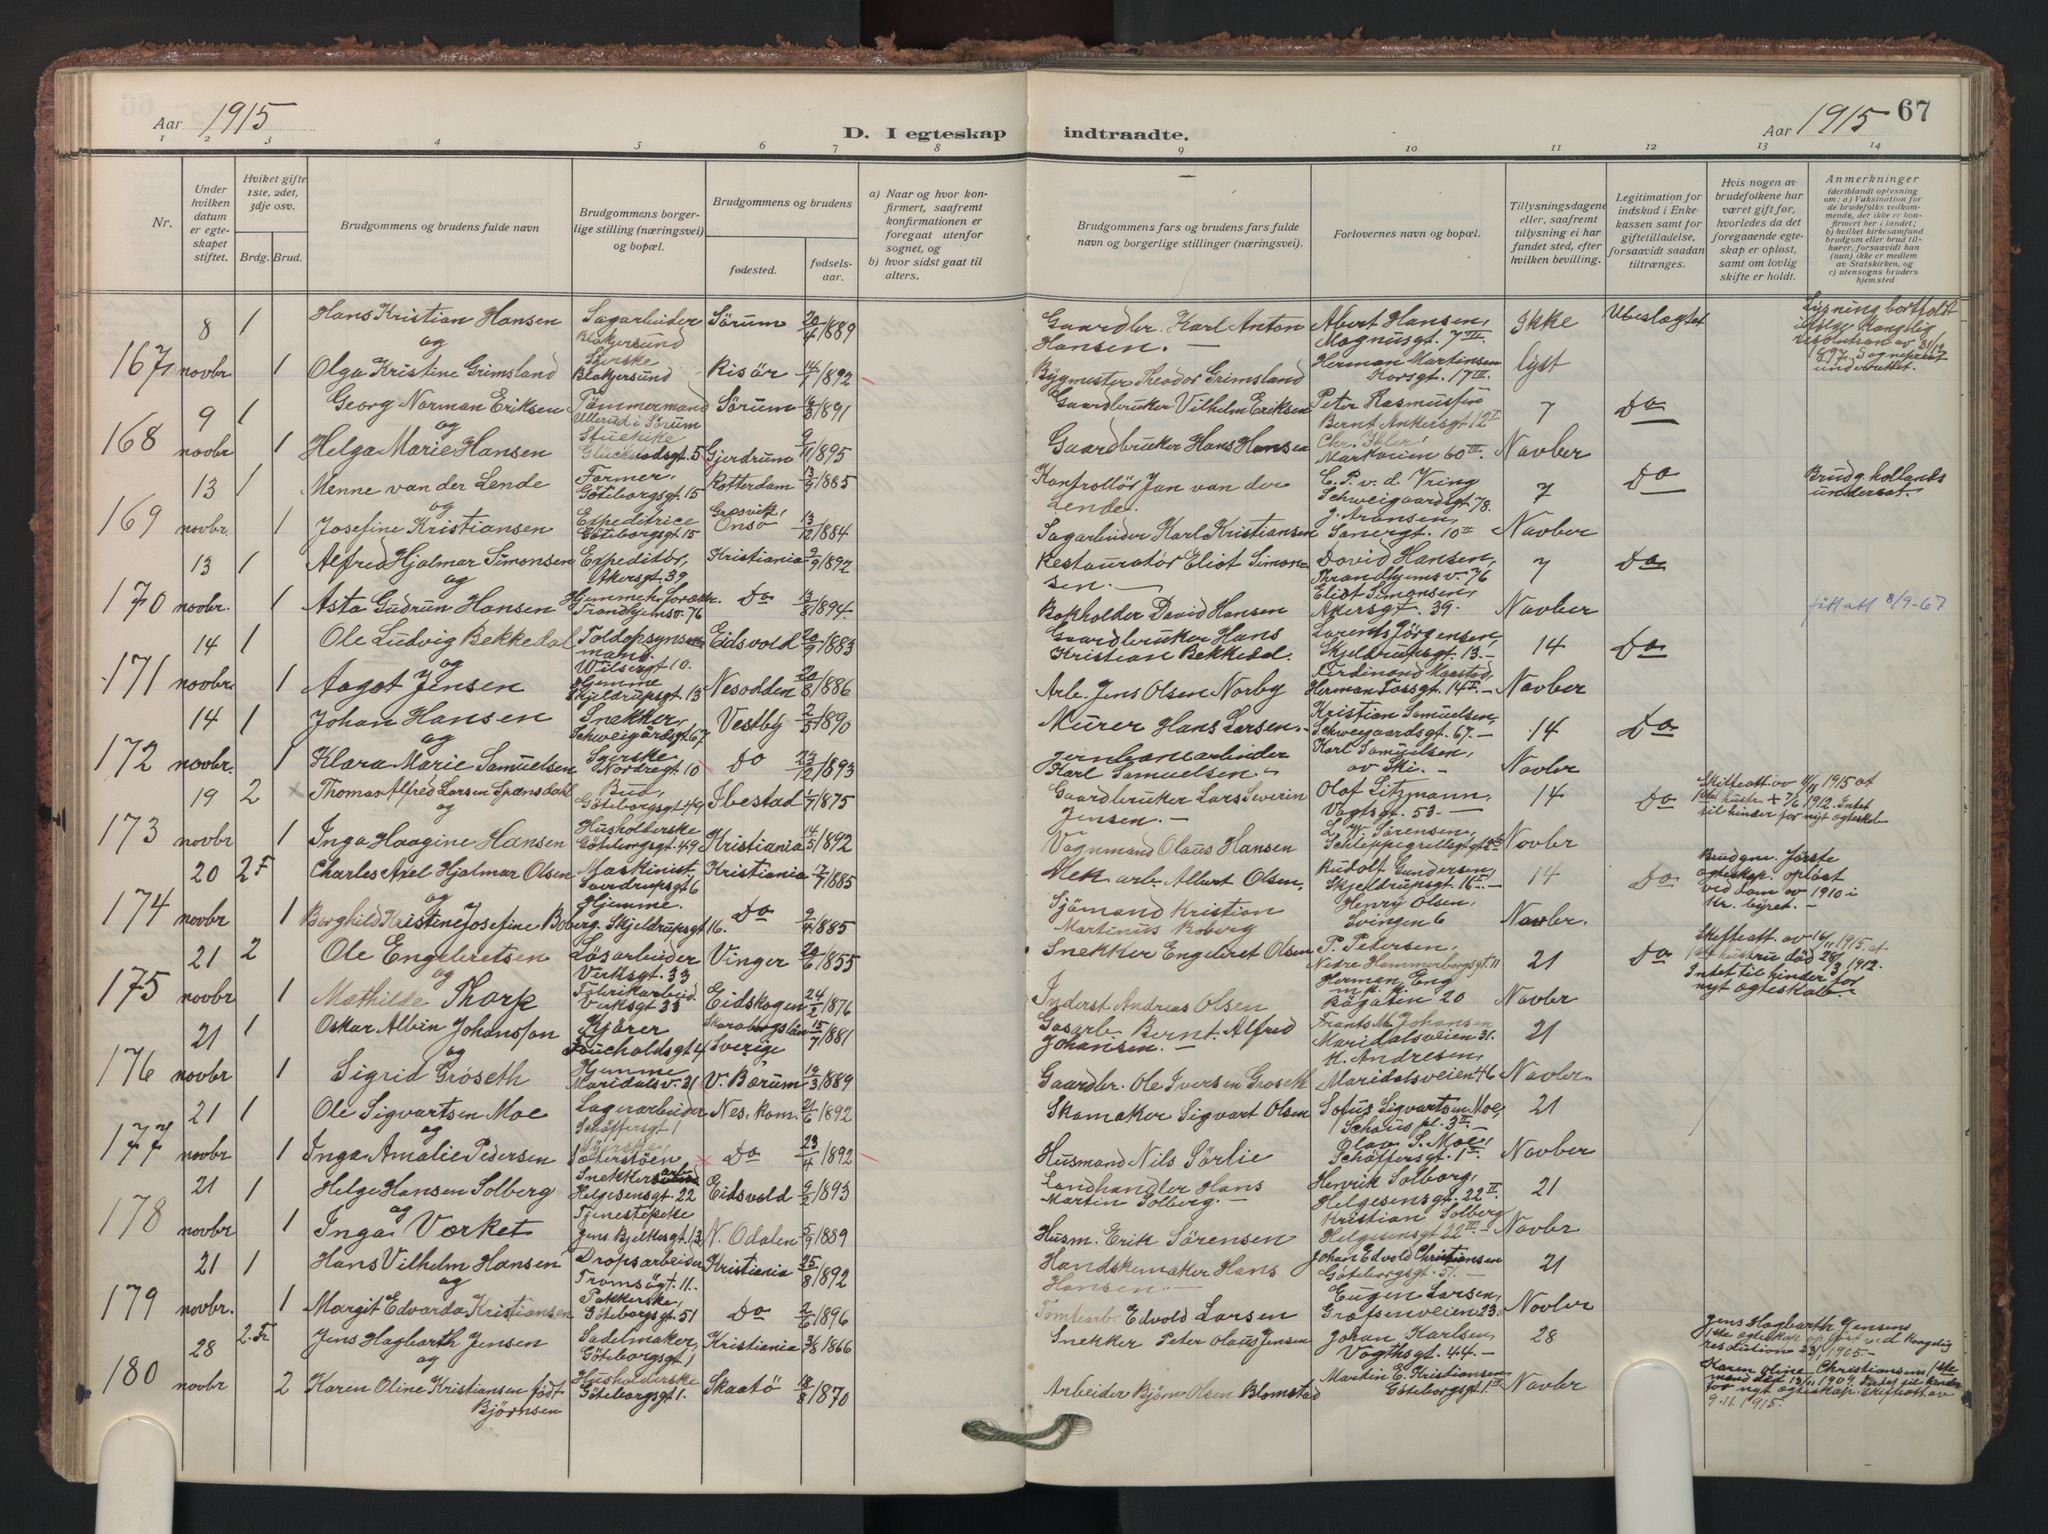 Aar 1915
D. I egteskap indtraadte.
Aar 1915
67
1 2 3 4 5 6 7 8 9 10 11 12 13 14
Nr.
Under hvilken datum er egteskapet stiftet.
Hviket gifte 1ste, 2det, 3dje osv.
Brdg. Brud.
Brudgommens og brudens fulde navn
Brudgommens borgerlige stilling (næringsvei) og bopæl.
Brudgommens og brudens
fødested.
fødselsaar.
a) Naar og hvor konfirmert, saafremt konfirmationen er foregaat utenfor sognet, og
b) hvor sidst gaat til alters.
Brudgommens fars og brudens fars fulde navn og borgerlige stillinger (næringsvei).
Forlovernes navn og bopæl.
Tillysningsdagene eller, saafremt tillysning ei har fundet sted, efter hvilken bevilling.
Legitimation for indskud i Enkekassen samt for giftetilladelse, forsaavidt saadan tiltrænges.
Hvis nogen av brudefolkene har været gift før, hvorledes da det foregaaende egteskap er opløst, samt om lovlig skifte er holdt.
Anmerkninger
(deriblandt oplysning om: a) Vaksination for de brudefolks vedkommende, der ikke er konfirmert her i landet; b) hvilket kirkesamfund brudgom eller brud tilhører, forsaavidt han (hun) ikke er medlem av Statskirken, og c) utensogns bruders hjemsted
167 8 novbr 1 Hans Kristian Hansen Sagarbeider Blakersund Sörum 20/4 1889 Gaardbr. Karl Anton Hansen. Albert Hansen, Magnusgt. 7 III Ikke Ubeslægtet
Lysning bortfaldt ifølge Kongelig resolution av 31/12
og
1 Olga Kristine Grimsland Syerske Blakersund Risör 14/1 1892 Bygmester Theodor Grimsland Herman Martinsen Korsgt. 17 III. lyst
168 9 novbr 1 Georg Norman Eriksen Tömmermand Ullerud i Sörum Sörum 1891 Gaardbruker Vilhelm Eriksen Peter Rasmussen Bernt Ankersgt 12 I 7 Do
og
1 Helga Marie Hansen Stuepike Gjerdrum 9/11 1895 Gaardbruker Hans Hansen Markveien 60 III. Novber
169 13 novbr 1 Menne van der Lende Former, Göteborgsgt. 15 Rotterdam 13/9 1885 Kontrollör Jan van der Lende. C. P. v. d. Vring Schweigaardsgt 78. 7 Do Brudg. hollandsk undersat.
og
1 Josefine Kristiansen Expeditrice Göteborgsgt 15 Gresvik, Onsö 13/12 1884 Sagarbeider Karl Kristiansen J. Aronsen, Sanergt. 10 II Novber
170 13 novbr. 1 Alfred Hjalmar Simonsen Expeditör, Akersgt. 39 Kristiania 2/9 1892 Restauratör Eliot Simonsen. David Hansen, Thrandhjemsv. 76 7 Do
og
1 Asta Gudrun Hansen Trandhjemsv. 76 Do 13/8 1894. Bokholder David Hansen Eliot Simonsen, Akersgt. 39. Novber 8/9-67
171 14 novbr. 1 Ole Ludvig Bekkedal Toldopsynsmand. Wilsesgt 10. Eidsvold 20/9 1883 Gaardbruker Hans Kristian Bekkedal. Lorents Jörgensen, Skjeldrupsgt. 13. 14 Do
og
1 Aagot Jensen Hjemme Skjeldrupsgt. 13 Nesodden 20/8 1886 Arb. Jens Olsen Norby Herman Fossgt. 14 I. Novber
172 14 novbr. 1 Johan Hansen Snekker, Schweigårdsgt. 67 Vestby 2/5 1890 Murer Hans Larsen. Kristian Samuelsen, Schweigaardsgt. 67. 14 Do
og
1 Klara Marie Samuelsen Syerske Nordregt. 10 Do 23/12 1893 Jernbanearbeider Karl Samuelsen. Karl Samuelsen, av Ski. Novbr
173 19 novbr 2 Thomas Alfred Larsen Spænsdahl Bud, Göteborgsgt 49 Ibestad 1/7 1875 Gaardbruker Lars Severin Jensen. Olaf Litzmann, Vogtsgt. 53 14 Do
Skifteatt av 11/11 1915 at 1ste hustr. + 7/6 1912. Intet til hinder for nyt egteskab
og
1 Inga Haagine Hansen Husholderske Göteborgsgt. 49 Kristiania 14/5 1892 Vognmand Olaus Hansen L. W. Sörensen, Novber
174 20 novbr 2 F Charles Axel Hjalmar Olsen Maskinist, Sverdrupsgt. 6 Kristiania 17/7 1885 Mek arb. Albert Olsen. Rudolf Gundersen, Skjeldrupsgt. 16 14 Do
Brudgm. første egteskap opløst ved dom av 1910 i Kr. byret.
og
1 Borghild Kristine Josefine Boberg. Hjemme. Skjeldrupsgt 16. Do 9/4 1885 Sjömand Kristian Martinus Boberg Henry Olsen, Svingen 6 Novbr.
175 21 novbr 2 Ole Engebretsen Lösarbeider Verksgt. 33 Vinger 20/6 1855 Snekker Engebret Olsen P. Petersen, Nedre Hammerborgsgt. 11 21 Do
Skifteatt. av 16/11 1915 at 1ste hustru död 28/3 1912. Intet til hinder for nyt egteskab.
og
1 Mathilde Thorp Fabrikarbeid. Verksgt 33 Eidskogen 1876 Inderst Andreas Olsen Herman Eng Bögaten 20 Novbr
176 21 novbr 1 Oskar Albin Johansson Kjörer Foucholdsgt 4 Skaraborgslän Sverige 15/7 1881 Gasarb. Bernt. Alfred Johansen. Frants M. Johansen Maridalsveien 31. 21
og
1 Sigrid Gröseth Hjemme Maridalsv. 31 V. Bærum 19/3 1889 Gaardbr. Ole Iversen Groseth K. Andresen, Maridalsveien 46 Novbr.
177 21 novbr 1 Ole Sigvartsen Moe Lagerarbeider Schöffersgt 1 Nes. Rom. 21/6 1892 Skomaker Sigvart Olsen Sofus Sigvartsen Moe, Schous pl. 3 II. 21
og
1 Inga Amalie Pedersen Do 23/4 1892 Husmand Nils Sörlie Olav S. Moe, Schöffersgt. 1 Novber
178 21 novbr 1 Helge Hansen Solberg Helgesensgt. 22 Eidsvold 9/2 1893 Landhandler Hans Martin Solberg. Henrik Solberg, Helgesensgt. 22 II. 21
og
1 Inga Værket Tjenestepike Jens Bjelkesgt. 13 N. Odalen 5/9 1889 Husm. Erik Sörensen Kristian Solberg Helgesensgt 22 III. Novbr
179 21 novbr. 1 Hans Vilhelm Hansen Dropsarbeider Tromsögt. 11. Kristiania 25/8 1892 Handskemaker Hans Hansen Johan Edvold Christiansen Göteborgsgt. 51. 21
og
1 Margit Edvarda Kristiansen Pakkerske, Göteborgsgt. 51 Do 2/6 1896 Tomtearb. Edvold Larsen Eugen Larsen, Grefsenveien 23. Novber
180 28 novbr 2. Fr. Jens Hagbarth Jensen Sadelmaker, Göteborgsgt 1 Kristiania 3/8 1866 Snekker Peter Olaus Jensen Johan Karlsen, Vogtsgt. 44. 28
Jens Hagbarth Jensens 1ste egteskap opløst ved Kongelig resolution 1905.
og
2 Karen Oline Kristiansen født Björnsen Husholderske Göteborgsgt 1. Skaatö 13/8 1870 Arbeider Björn Olsen Blomstad Martin E. Kristiansen Göteborgsgt. 1 Novbr
Karen Oline Christiansens 1ste mand död 1909. Intet til hinder for nyt egteskap. Skifteatt av 9.11.1915.